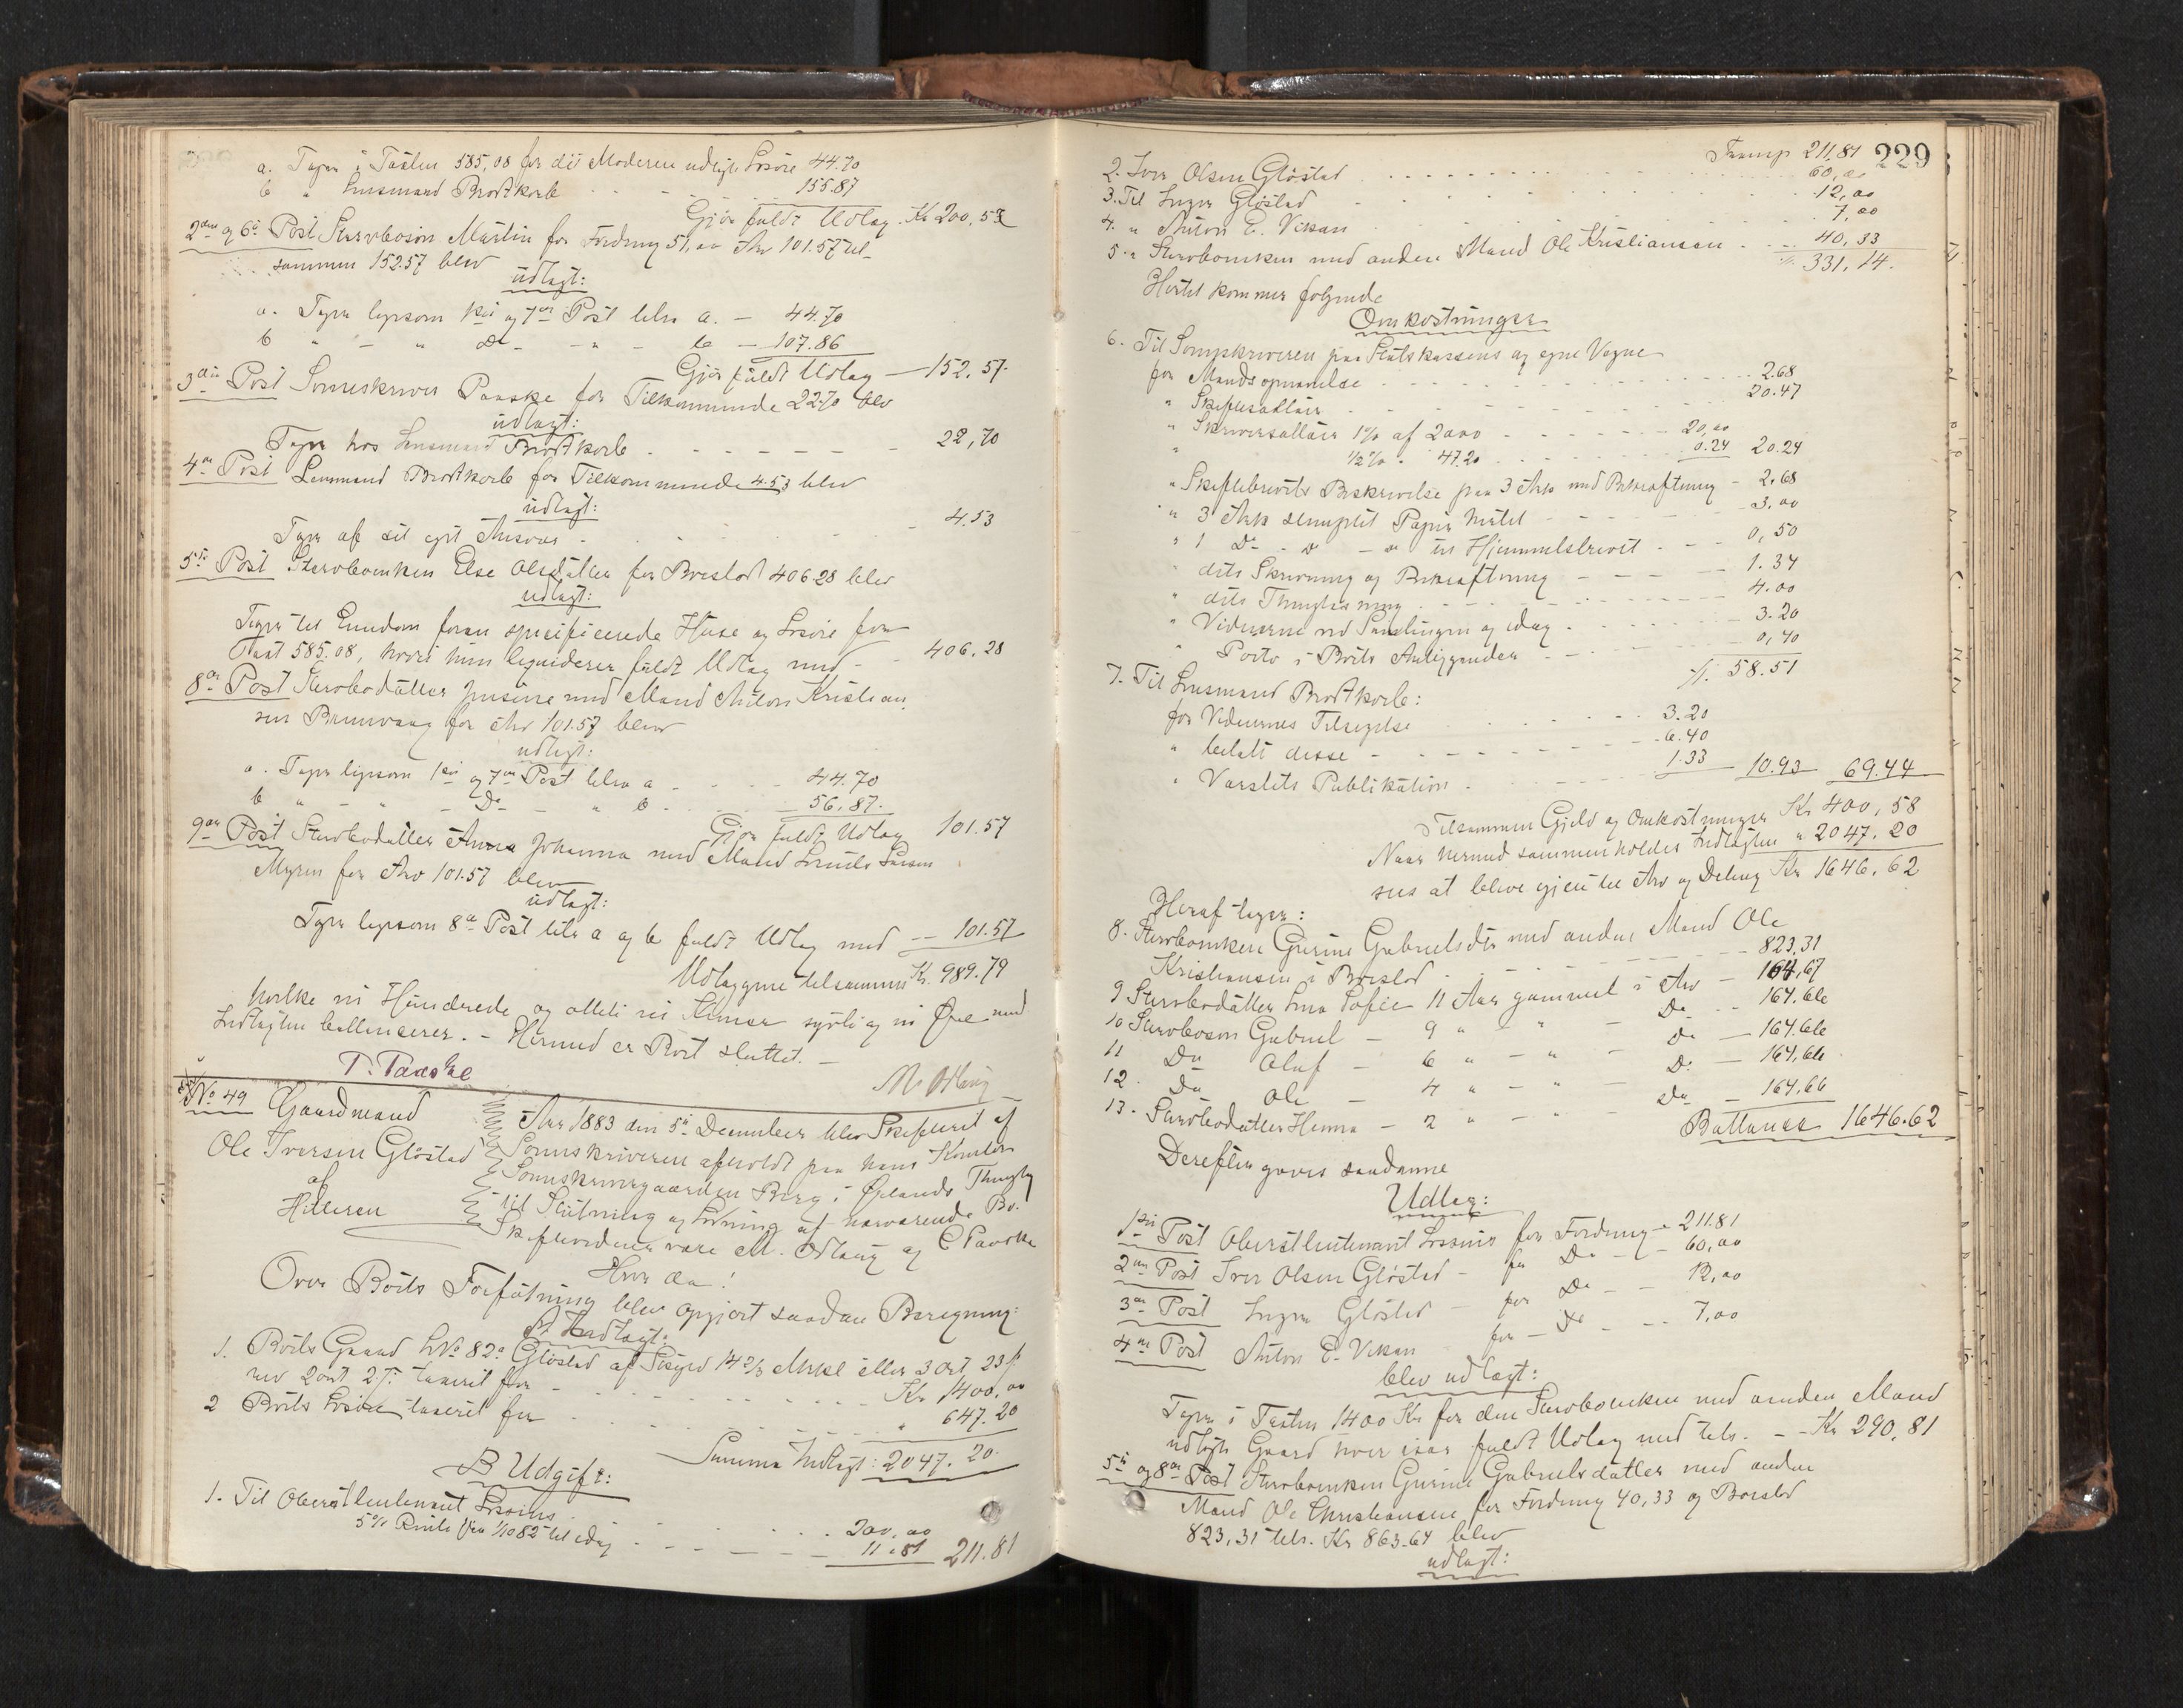 a. Tages i Taxten 585,08 for det Moderen udlagte Løsøre 44.70
b " Lensmand Brodtkorb 155.87
Gjør fuldt Udlæg Kr 200,57
2den og 6te Post Stervbosøn Martin for Fordring 51,00 Arv 101.57 til-
sammen 152.57 blev
udlagt:
a. Tages ligesom 1ste og 7de Post litra a. – 44.70
b " – " Do – " – b – 107.86
Gjør fuldt Udlæg – 152.57.
3die Post Sorenskriver Paaske for Tilkommende 22.70 blev
udlagt:
Tages hos Lensmand Brodtkorb 22,70
4de Post Lensmand Brodtkorb for Tilkommende 4.53 blev
udlagt:
Tages af sit eget Ansvar 4.53
5te Post Stervboenken Else Olsdatter for Boeslod 406.28 blev
udlagt:
Tages til Eiendom foran specificerede Huse og Løsøre for
Taxt 585.08, hvori hun liqviderer fuldt Udlæg med 406.28
8de Post Stervbodatter Jensine med Mand Anton Kristian-
sen for Arv 101.57 blev
udlagt:
a. Tages ligesom 1ste og 7de Post litra a 44.70
b " – " – Do – " b 56.87.
Gjør fuldt Udlæg 101.57
9de Post Stervbodatter Anna Johanna med Mand Larsen
Myren for Arv 101.57 blev
udlagt:
Tages ligesom 8de Post litra a og b fuldt Udlæg med 101.57
Udlæggene tilsammen Kr. 989.79
hvilke ni Hundrede og otteti ni Kroner sytti og ni Øre med
Indtægten ballancerer. – Hermed er Boet sluttet. –
P. Paaske
M. Ødlaug
No 49 Gaardmand
Ole Iversen Gløstad
af
Hitteren
Aar 1883 den 5te December blev Skifteret af
Sorenskriveren afholdt paa hans Kontor
Sorenskrivergaarden Berg i Ørlands Thinglag
til Slutning og Lodning af nærværende Bo.
Skiftevidner vare M. Ødlaug og C Paaske
Hvor da!
Over Boets Forfatning blev opgjort saadan Beregning:
A Indtægt:
1. Boets Gaard LNo 82a Gløstad af Skyld 14 2/3 Mrkl eller 3 Ort 23 ß
rev 2 Ort 2 ß taxeret for Kr 1400,00
2 Boets Løsøre taxeret for " 647.20
Summa Indtægt: 2047.20.
B Udgift:
1. Til Oberstlieutenant 200,00
5% Rente fra 1/10 82 til idag 11.81 211.81
229
Transp 211,81
2. Iver Olsen Gløstad 60,00
3. Til Inger Gløstad 12,00
4. " Anton E. Vikan 7,00
5. " Stervboenken med anden Mand Ole Kristiansen 40,33
331,14.
Hertil kommer følgende
Omkostninger
6. Til Sorenskriveren paa Statskassens og egne Vegne
for Mandsopnævnelse 2.68
" Skiftesallair 20.47
" Skriversallair 1% af 2000 20,00
" 1/2% " 47.20 0.24 20.24
" Skiftebrevets Beskrivelse paa 3 Ark med Bekræftning 2,68
" 3 Ark stemplet Papir hertil 3,00
" 1 Do – Do – til Hjemmelsbrevet 0,50
" dets Skrivning og Bekræftning 1.34
" dets Thinglæsning 4.00
" Vidnerne ved Samlingen og idag 3.20
" Porto i Boets Anliggender 0,40
58.51
7. Til Lensmand Brodtkorb:
for Vidnernes Tilsigelse 3.20
" betalt disse 6.40
" Varslets Publikation 1.33 10.93 69.44
Tilsammen Gjeld og Omkostninger Kr 400,58
Naar hermed sammenholdes Indtægten " 2047.20
sees at blive igjen til Arv og Deling Kr 1646,62
Heraf tager:
8. Stervboenken Gurine Gabrielsdtr med anden Mand Ole
Kristiansen i Boeslod 823,31
9 Stervbodatter Lina Sofie 11 Aar gammel i Arv – 164,67
10 Stervbosøn Gabriel – 9 " – " – Do 164.66
11 Do Oluf – 6 " – " – Do – 164.66
12. Do Ole – 4 " – " – Do – 164,66
13. Stervbodatter Hanna – 2 " – " – Do – 164.66
Ballance 1646.62
Derefter gaves saadanne
Udlæg:
1ste Post Oberstlieutenant for Fordring 211.81
2den Post Iver Olsen Gløstad – for Do – 60,00
3die Post Inger Gløstad for Do – 12,00
4de Post Anton E. Vikan for – Do – 7,00
blev udlagt:
Tages i Taxten 1400 Kr for den Stervboenken med anden Mand
udlagte Gaard hver især fuldt Udlæg med tils. – Kr 290,81
5te og 8de Post Stervboenken Gurine Gabrielsdatter med anden
Mand Ole Christiansen for Fordring 40,33 og Boeslod
823,31 tils. Kr 863.64 blev
udlagt: